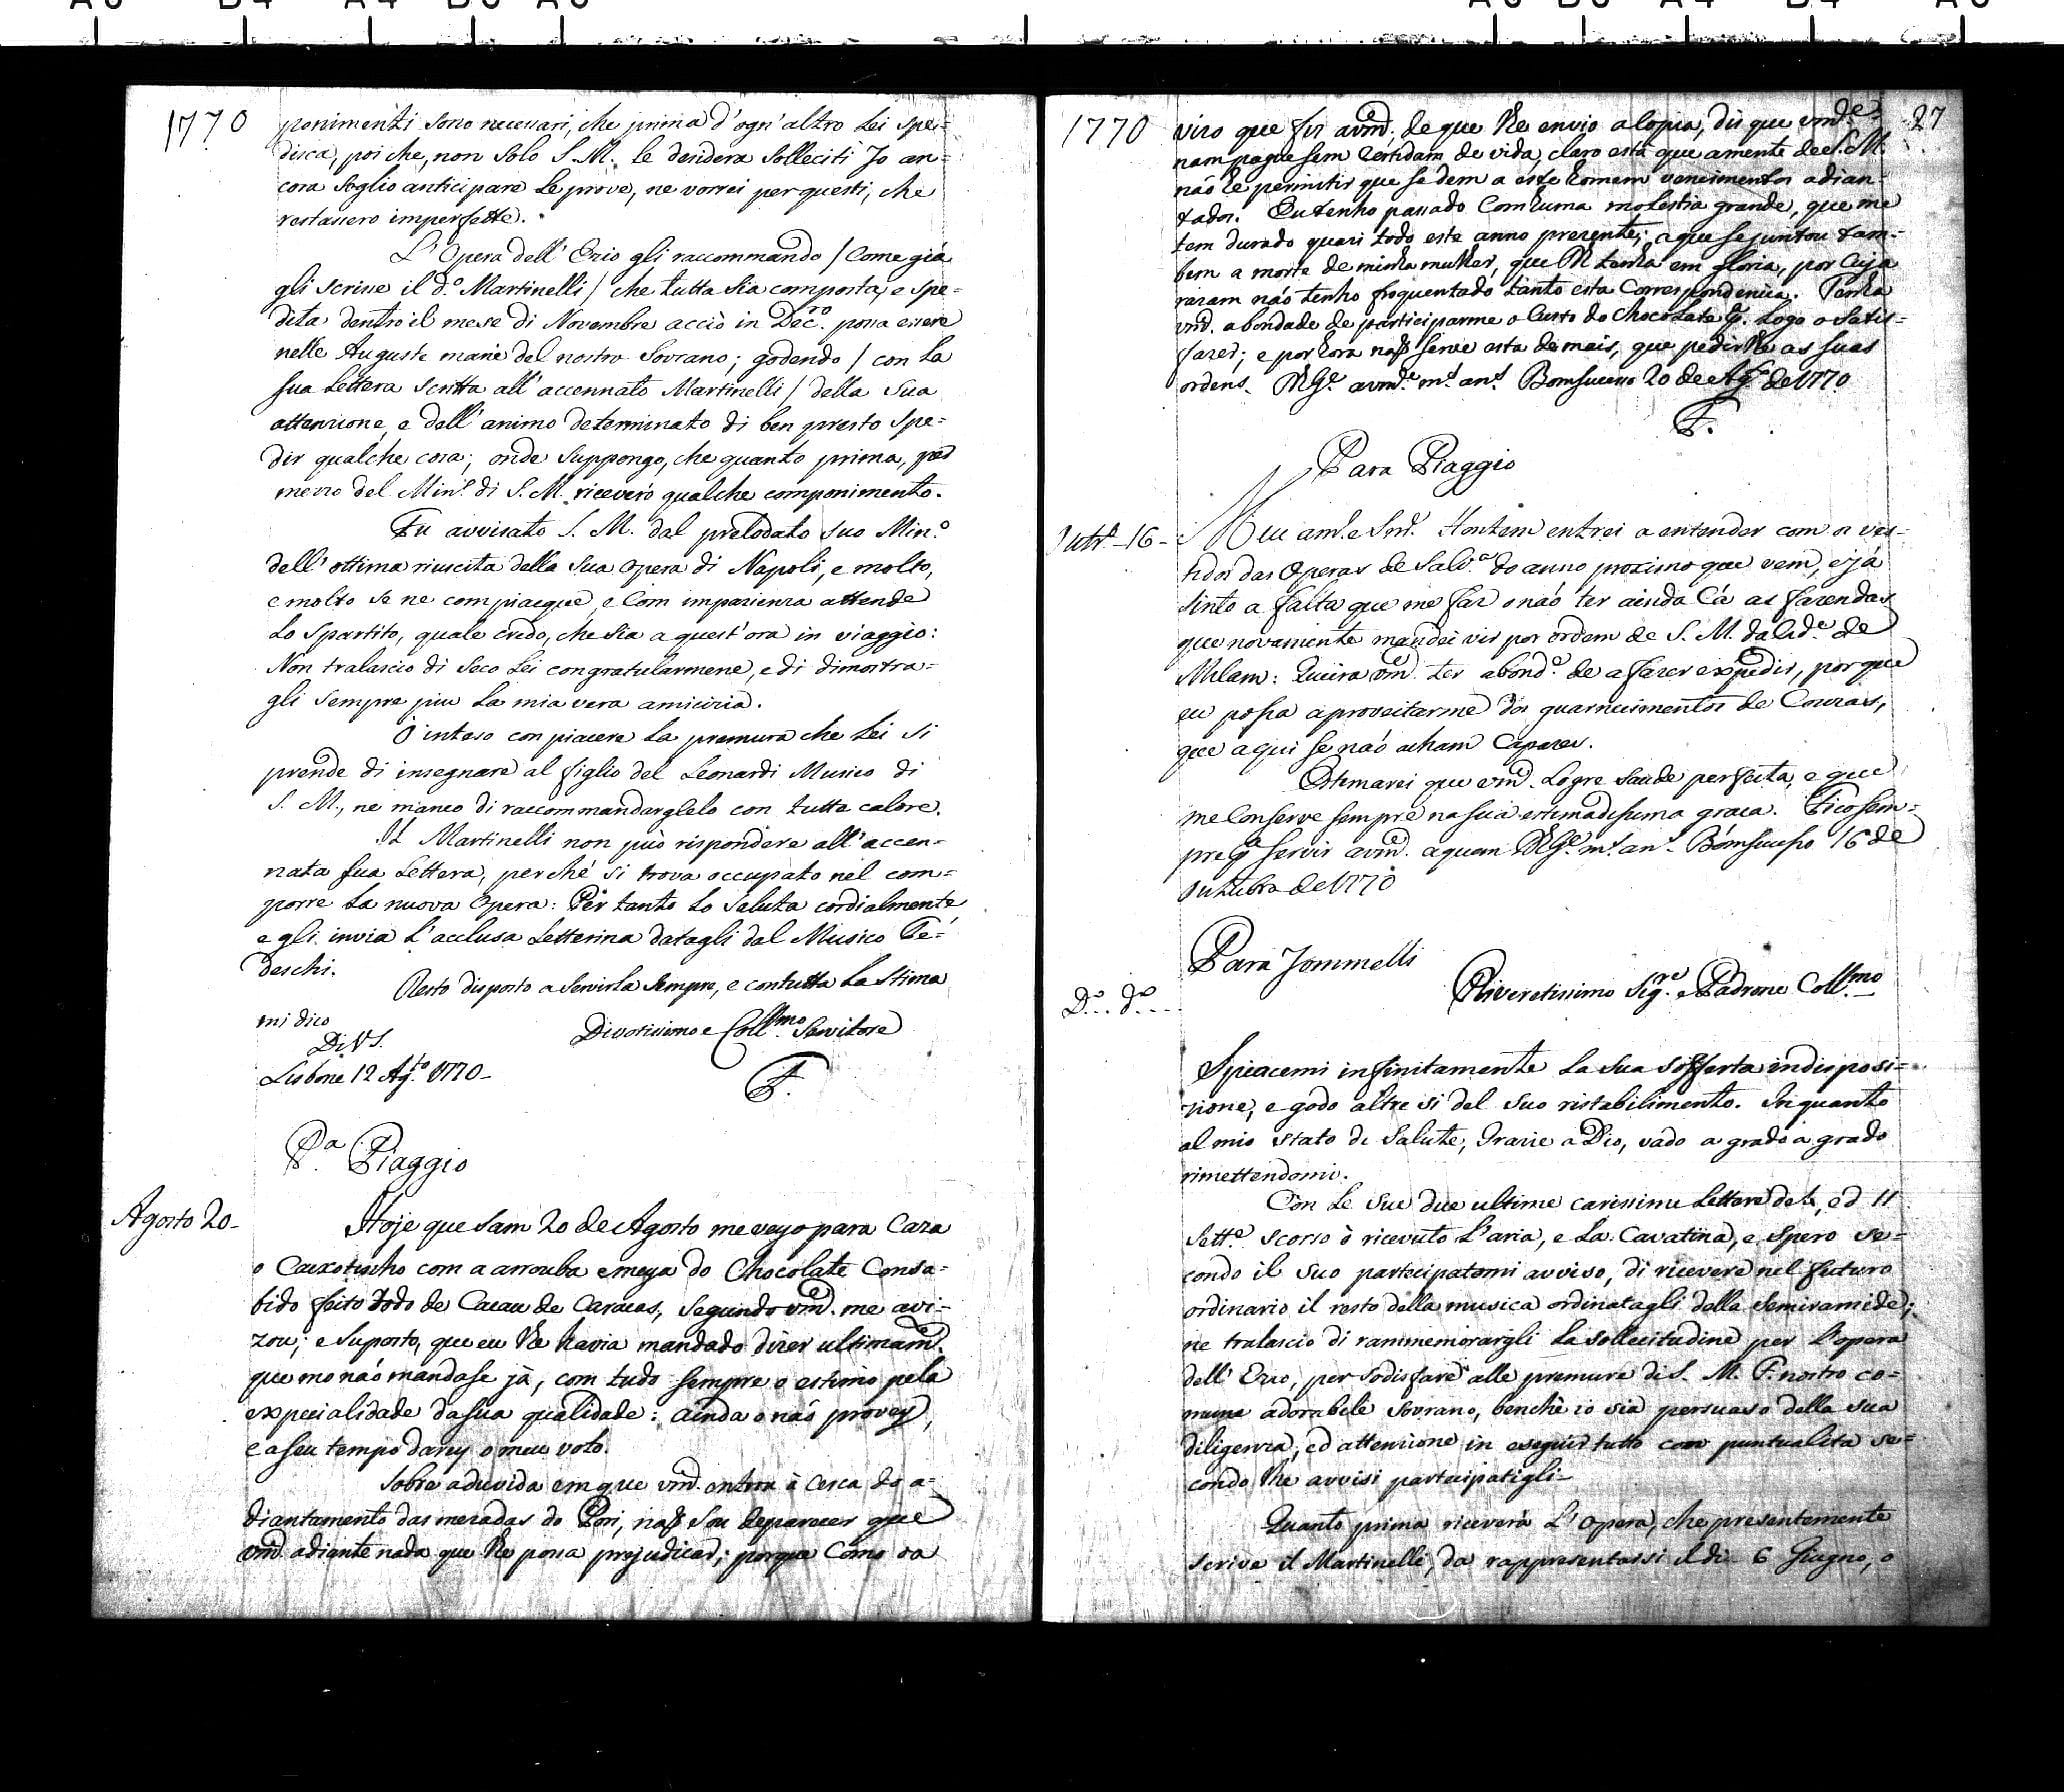 1770
ponimenti sono necessari, che prima d'ogn'altro Lei spe-
disca, poi che, non solo S. M. le desidera solleciti Jo an-
cora soglio anticipare le prove, ne vorrei per questi, che
restassero imperfette.
L'Opera dell'Ezio gli raccommando / come già
gli scrisse il d.º Martinelli / che tutta sia composta, e spe-
dita dentro il mese di Novembre acciò in Dec.ro possa essere
nelle Auguste mani del nostro Sovrano; godendo / con la
sua Lettera scritta all'accennato Martinelli / della sua
attenzione, e dell'animo determinato di ben presto spe-
dir qualche cosa; onde suppongo, che quanto prima, per
mezzo del Min.º di S. M. riceverò qualche componimento.
Fu avvisato S. M. dal prelodato suo Min.º
dell'ottima riuscita della sua Opera di Napoli, e molto,
e molto se ne compiacque, e com impazienza attende
lo Spartito, quale credo, che sia a quest'ora in viaggio:
Non tralascio di seco Lei congratularmene, e di dimostra-
gli sempre piu la mia vera amicizia.
Ò inteso con piacere la premura che Lei si
prende di insegnare al figlio del Leonardi Musico di
S. M., ne manco di raccommandarglelo con tutto calore.
Il Martinelli non può rispondere all'accen-
nata sua Lettera, perchè si trova occupato nel com-
porre la nuova Opera: Per tanto lo saluta cordialmente
e gli invia l'acclusa Letterina datagli dal Musico Te-
deschi.
Resto disposto a servirla sempre, e con tutta la stima
mi dico
Di V S.
Divotissimo e Coll.mo Servitore
Lisbone 12 Ag.to 1770-
P.
P.a Piaggio
Agosto 20-
Hoje que sam 20 de Agosto me veyo para Caza
o Caixotinho com a arrouba e meya do Chocolate Consa-
bido feito todo de Cacau de Caracas, segundo vm.ce me avi-
zou; e suposto, que eu lhe havia mandado dizer ultimam.te
que mo náo mandase já, com tudo sempre o estimo pela
expecialidade da sua qualidade: ainda o náo provey,
e a seu tempo darey o meu voto.
Sobre a duvida em que vm.ce entra à cerca do a-
diantamento das mezadas do Pori, náo sou de parecer que
vm.ce adiante nada que lhe possa prejudicar; porque como o a
1770
27
vizo que fiz a vm.ce de que lhe envio a Copia, diz que vm.ce
nam pague sem Certidam de vida, claro está que a mente de S. M.
náo he permitir que se dem a este homem vencimentos adian-
tados. Eu tenho passado com huma molestia grande, que me
tem durado quazi todo este anno prezente; a que se juntou tam-
bem a morte de minha mulher, que Ds. tenha em gloria, por cuja
razam náo tenho frequentado tanto esta Correspondencia. Tenha
vm.ce a bondade de participarme o Custo do Chocolate p.a logo o satis-
fazer; e por hora náo serve esta de mais, que pedir lhe as suas
ordens. Ds. G.e a vm.ce m.s an.s Bomsucesso 20 de Ag.to de 1770
P.
Para Piaggio
Outr.º -16-
Meu am.º e S.nr Hontem entrei a entender com os ves-
tidos das Operas de Salv.a do anno proximo que vem, e já
sinto a falta que me faz o náo ter ainda Cá as fazendas
que novamente mandei vir por ordem de S. M. da Cid.e de
Milam: Queira vm.ce ter a bond.e de a fazer expedir, porque
eu possa aproveitarme dos guarnecimentos de Couzas,
que aqui se náo acham Capazes.
Estimarei que vm.ce logre saude perfeita, e que
me Conserve sempre na sua estimadissima graça. Fico sem-
pre p.a servir a vm.ce a quem Ds. G.e m.s an.s Bomsucesso 16 de
Outubro de 1770
Para Jommelli
D.º d.º
Riveritissimo Sig.re e Padrone Coll.mo
Spiacemi infinitamente la sua sofferta indisposi-
zione, e godo altre si del suo ristabilimento. In quanto
al mio stato di Salute, Grazie a Dio, vado a grado a grado
rimettendomi.
Con le sue due ultime carissime Lettere de 4, ed 11
Sett.e scorso ò ricevuto l'aria, e la Cavatina, e spero se-
condo il suo partecipatomi avviso, di ricevere nel futuro
ordinario il resto della musica ordinatagli della Semiramide;
ne tralascio di rammemorargli la sollecitudine per l'opera
dell'Ezio, per sodisfare alle premure di S. M. F. nostro co-
mune adorabile Sovrano, benchè io sia persuaso della sua
diligenza, ed attenzione in eseguir tutto con puntualità se-
condo lhe avvisi partecipatigli-
Quanto prima riceverà l'Opera, che presentemente
scrive il Martinelli, da rappresentarsi il di 6 Giugno, o